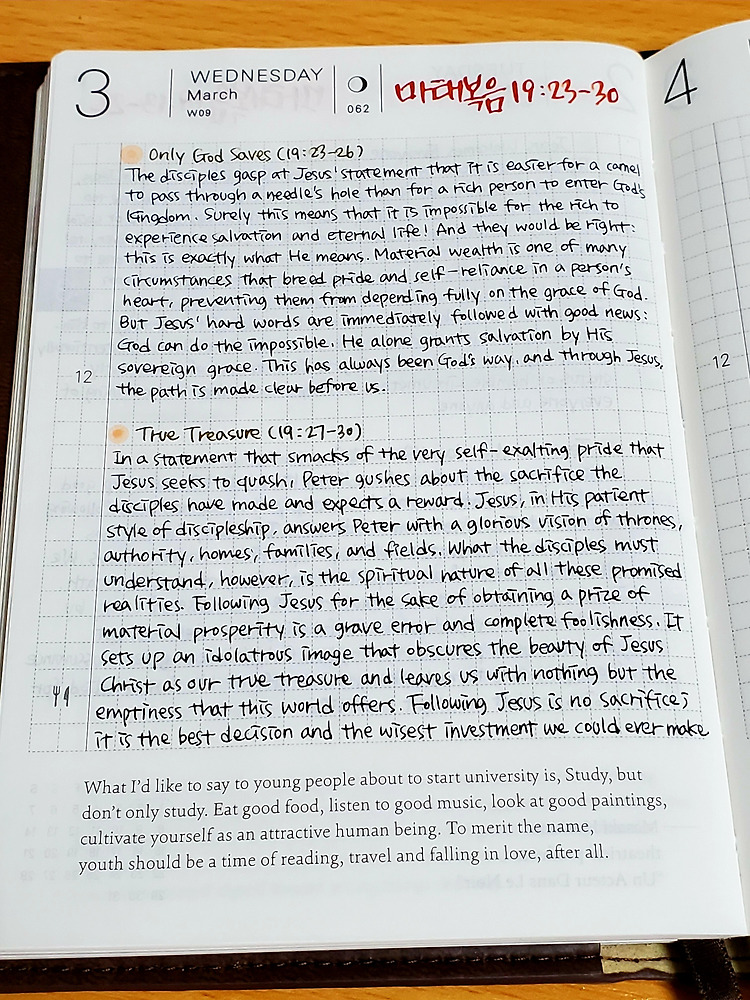 3
WEDNESDAY
March
W09
062
마태복음 19:23-30
4
Only God Saves (19:23-26)
The disciples gasp at Jesus' statement that it is easier for a camel
to pass through a needle's hole than for a rich person to enter God's
Kingdom. Surely this means that it is impossible for the rich to
experience salvation and eternal life! And they would be right:
this is exactly what He means. Material wealth is one of many
circumstances that breed pride and self-reliance in a person's
heart, preventing them from depending fully on the grace of God.
But Jesus' hard words are immediately followed with good news:
God can do the impossible. He alone grants salvation by His
sovereign grace. This has always been God's way, and through Jesus,
12
the path is made clear before us.
12
True Treasure (19:27-30)
In a statement that smacks of the very self-exalting pride that
Jesus seeks to quash, Peter gushes about the sacrifice the
disciples have made and expects a reward. Jesus, in His patient
style of discipleship, answers Peter with a glorious vision of thrones,
authority, homes, families, and fields. What the disciples must
understand, however, is the spiritual nature of all these promised
realities. Following Jesus for the sake of obtaining a prize of
material prosperity is a grave error and complete foolishness. It
sets up an idolatrous image that obscures the beauty of Jesus
Christ as our true treasure and leaves us with nothing but the
emptiness that this world offers. Following Jesus is no sacrifice;
it is the best decision and the wisest investment we could ever make
What I'd like to say to young people about to start university is, Study, but
don't only study. Eat good food, listen to good music, look at good paintings,
cultivate yourself as an attractive human being. To merit the name,
youth should be a time of reading, travel and falling in love, after all.